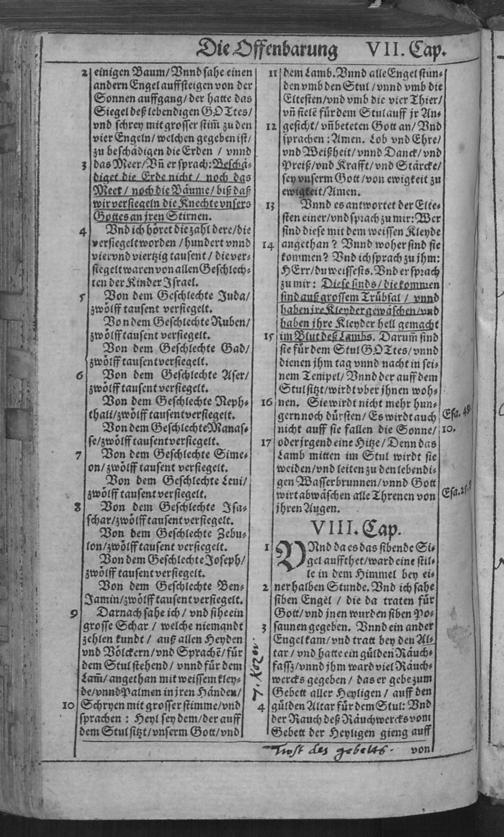 Die Offenbarung VII. Cap.
2 einigen Baum/Vnnd sahe einen
andern Engel auffsteigen von der
Sonnen auffgang/der hatte das
Siegel deß lebendigen GOTtes/
vnd schrey mit grosser stim̃ zu den
vier Engeln/welchen gegeben ist/
zu beschädigen die Erden / vnnd
3 das Meer/Vñ er sprach: Beschä-
diget die Erde nicht / noch das
Meer / noch die Bäume/biß daß
wir versiegeln die Knechte vnsers
Gottes an jren Stirnen.
4 Vnd ich höret die zahl dere/die
versiegelt worden / hundert vnnd
vier vnd viertzig tausent / die ver-
siegelt waren von allen Geschlech-
ten der Kinder Israel.
5 Von dem Geschlechte Juda/
zwölff tausent versiegelt.
Von dem Geschlechte Ruben/
zwölff tausent versiegelt.
Von dem Geschlechte Gad/
zwölff tausent versiegelt.
6 Von dem Geschlechte Aser/
zwölff tausent versiegelt.
Von dem Geschlechte Neph-
thali/zwölff tausent versiegelt.
Von dem Geschlechte Manas-
se/zwölff tausent versiegelt.
7 Von dem Geschlechte Sime-
on/zwölff tausent versiegelt.
Von dem Geschlechte Leui/
zwölff tausent versiegelt.
8 Von dem Geschlechte Isa-
schar/zwölff tausent versiegelt.
Von dem Geschlechte Zebu-
lon/zwölff tausent versiegelt.
Von dem Geschlechte Joseph/
zwölff tausent versiegelt.
Von dem Geschlechte Ben-
Jamin/zwölff tausent versiegelt.
9 Darnach sahe ich / vnd sihe ein
grosse Schar / welche niemandt
zehlen kundt / auß allen Heyden
vnd Völckern/vnd Sprachẽ/für
dem Stul stehend / vnnd für dem
Lam̃/angethan mit weissen kley-
de/vnnd Palmen in jren Händen/
10 Schryen mit grosser stimme/vnd
sprachen : Heyl sey dem/der auff
dem Stul sitzt/vnserm Gott/vnd
11 dem Lamb. Vnnd alle Engel stun-
den vmb den Stul / vnnd vmb die
Eltesten/vnd vmb die vier Thier/
vñ fielẽ für dem Stul auff jr An-
12 gesicht/ vñ beteten Gott an/ Vnd
sprachen: Amen. Lob vnd Ehre/
vnd Weißheit/vnnd Danck/vnd
Preiß/vnd Krafft/vnd Stärcke/
sey vnserm Gott/von ewigkeit zu
ewigkeit/Amen.
13 Vnnd es antwortet der Elte-
sten einer/vnd sprach zu mir: Wer
sind diese mit dem weissen Kleyde
14 angethan? Vnnd woher sind sie
kommen? Vnd ich sprach zu jhm:
HErr/du weissests. Vnd er sprach
zu mir : Diese sinds/die kommen
sind auß grossem Trübsal / vnnd
haben jre Kleyder gewäschen/vnd
haben jhre Kleyder hell gemacht
15 im Blut deß Lambs. Darum̃ sind
sie für dem Stul GOTtes/vnnd
dienen jhm tag vnnd nacht in sei-
nem Tempel/Vnnd der auff dem
Stul sitzt/wirdt vber jhnen woh-
16 nen. Sie wirdt nicht mehr hun-
gern noch dürsten/Es wirdt auch
nicht auff sie fallen die Sonne/
17 oder jrgend eine Hitze/Denn das
Lamb mitten im Stul wirdt sie
weiden/vnd leiten zu den lebendi-
gen Wasserbrunnen/vnnd Gott
wirt abwäschen alle Threnen von
jhren Augen.
Esa.49.
10.
Esa.25.8
VIII. Cap.
1 VNnd da es das sibende Si-
gel auffthet/ward eine stil-
le in dem Himmel bey ei-
2 ner halben Stunde. Vnd ich sahe
siben Engel / die da traten für
Gott/vnd jnen wurden siben Po-
3 saunen gegeben. Vnnd ein ander
Engel kam/vnd tratt bey den Al-
tar / vnd hatte ein gülden Räuch-
fassz/vnnd jhm ward viel Räuch-
wercks gegeben / das er gebe zum
Gebett aller Heyligen / auff den
4 gülden Altar für dem Stul: Vnd
der Rauch deß Räuchwercks vom
Gebett der Heyligen gieng auff
von